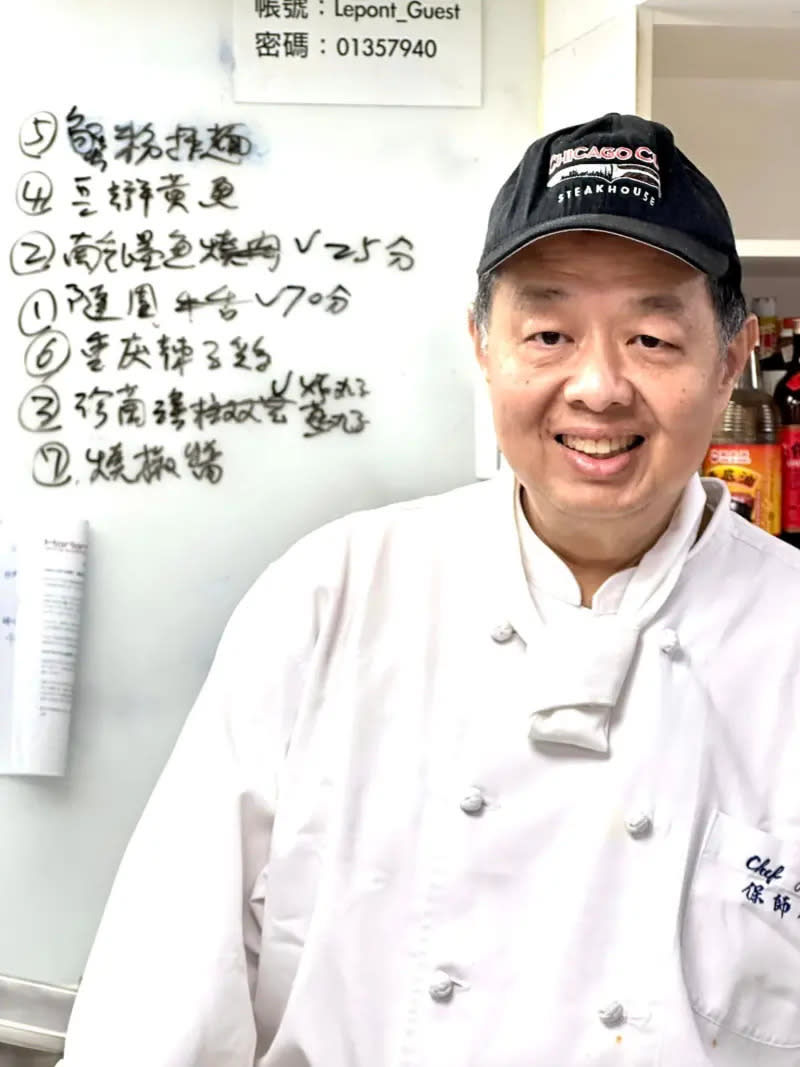 帳號：Lepont_Guest
密碼：01357940
⑤ 蟹粉拌麵
④ 豆瓣黃魚
② 南乳墨魚燒肉 ✓ 25分
① 隨園牛舌 ✓ 70分
⑥ 重慶辣子鷄
③ 珍菌 ✓ 炸丸子
蒸丸子
⑦ 燒椒醬
CHICAGO
STEAKHOUSE
Chef
保師